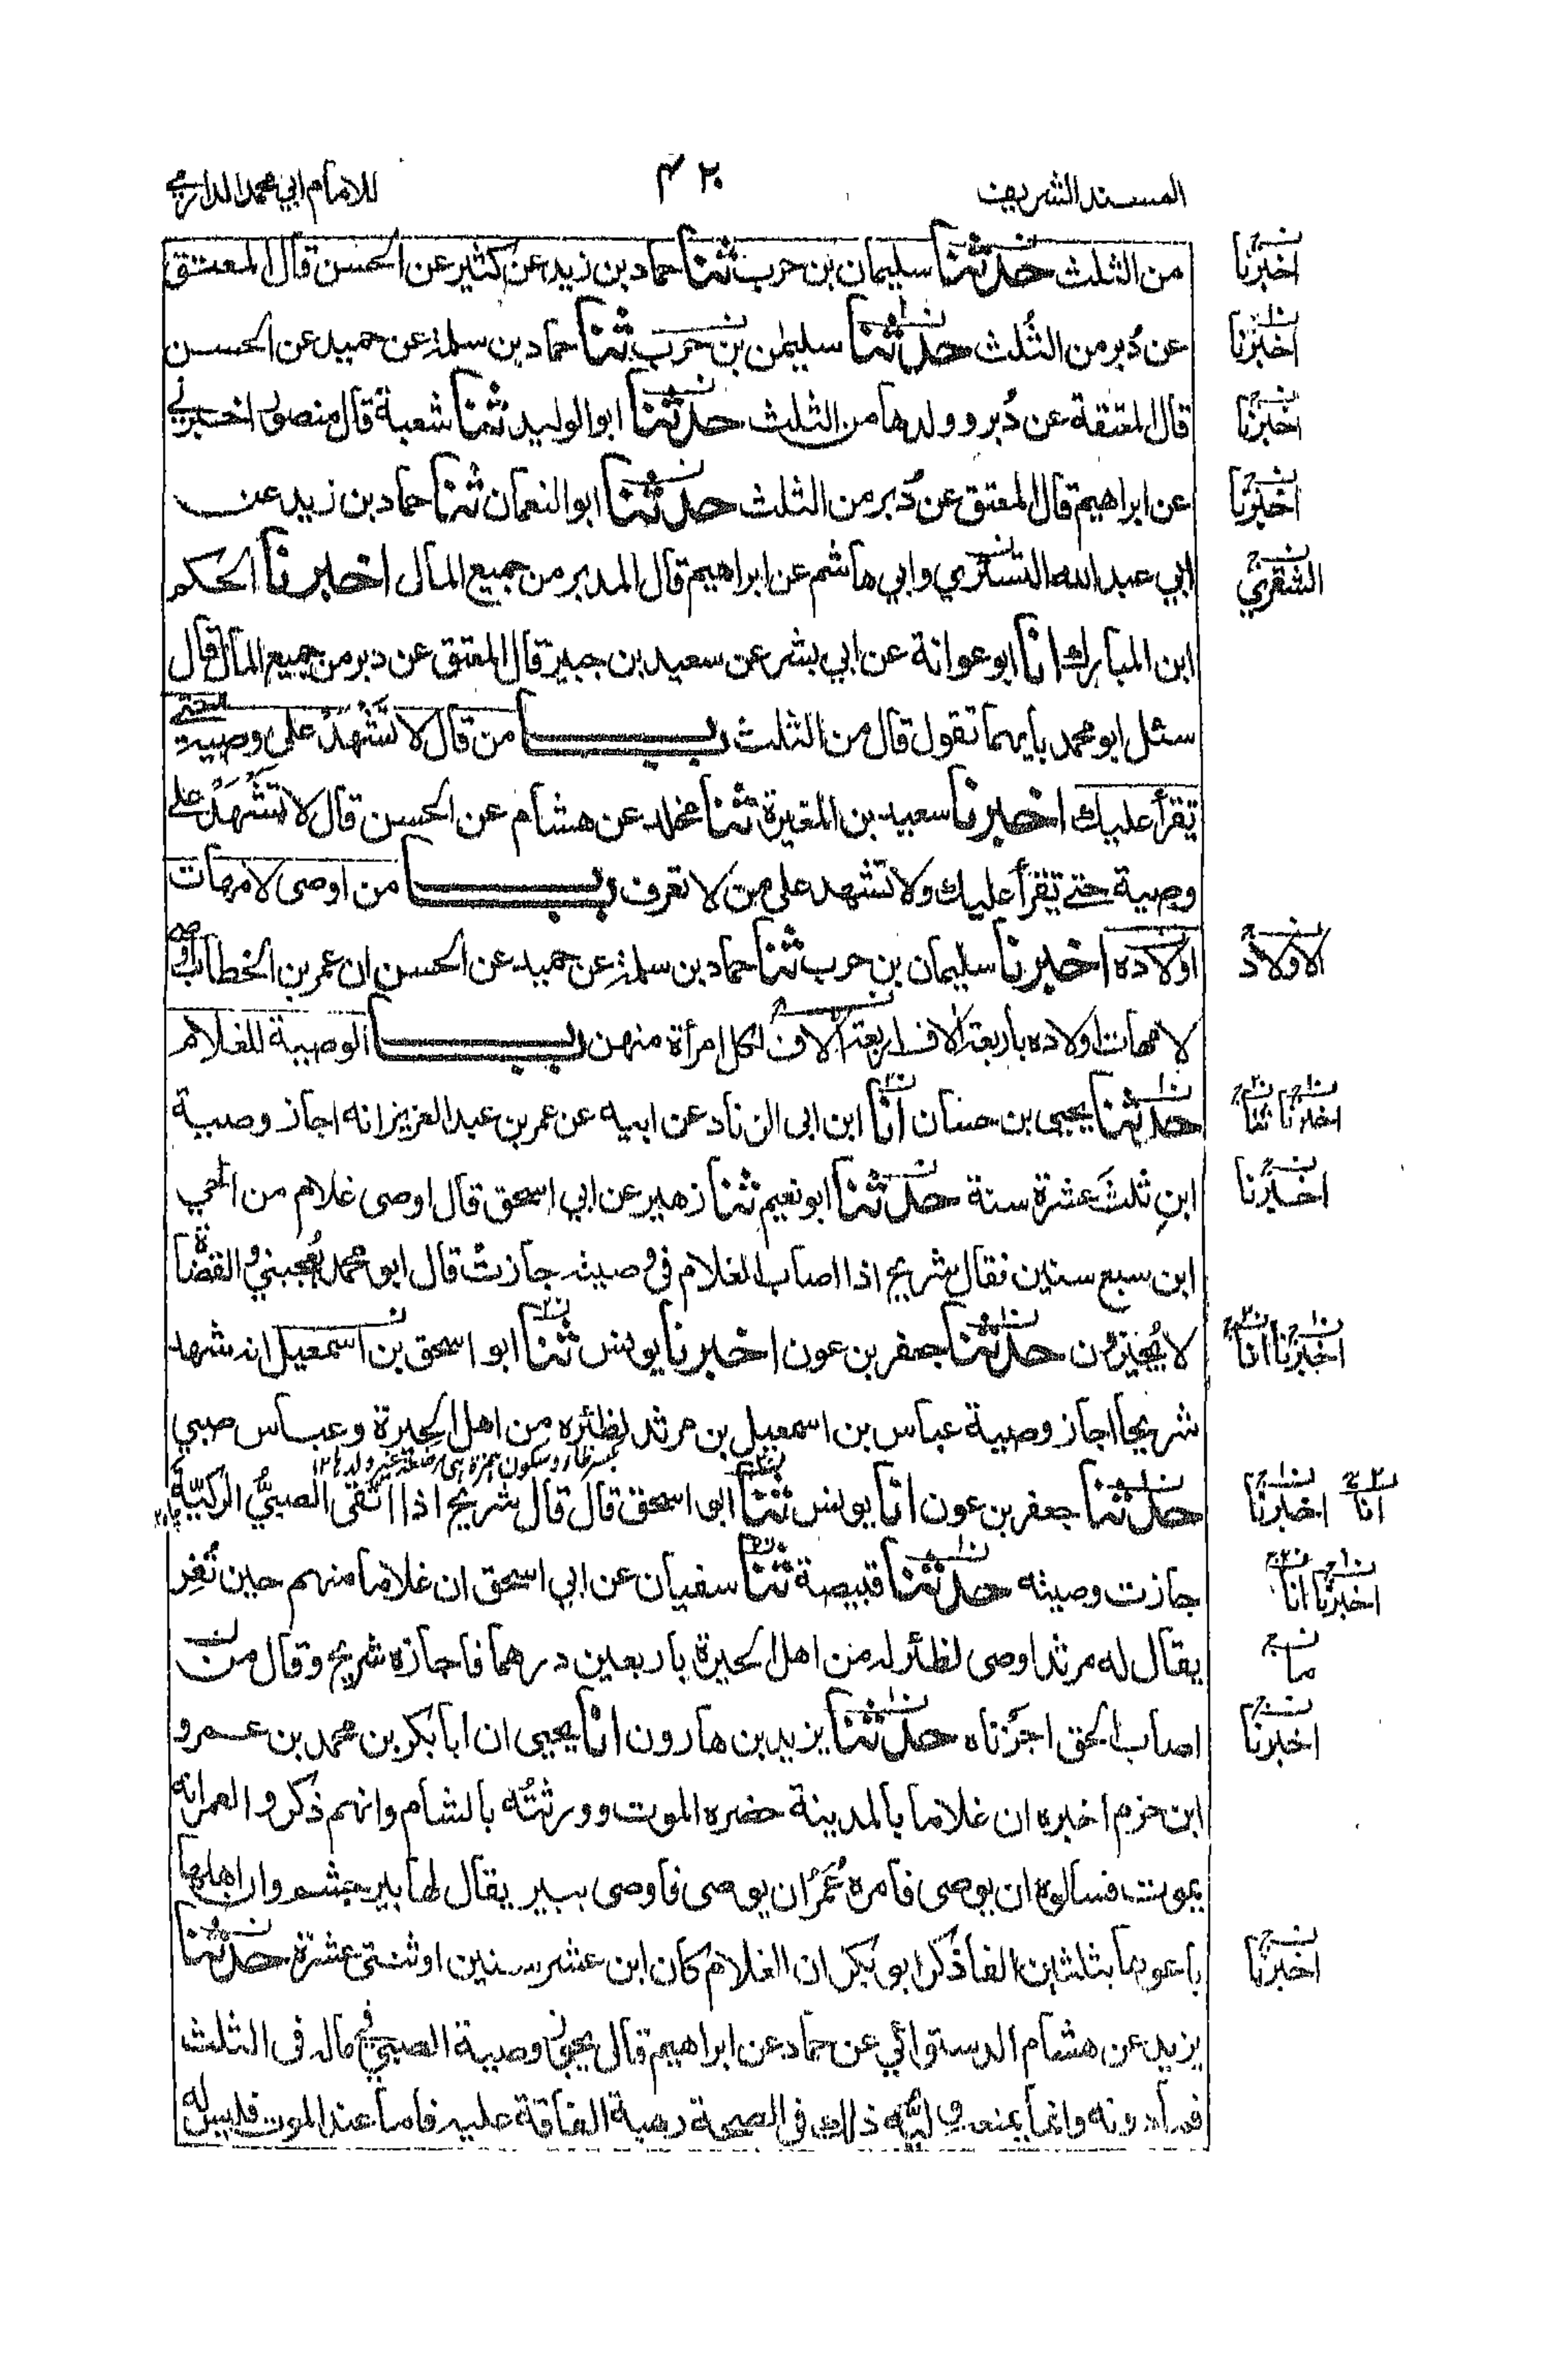 المسند الشريف
٤٢٠
للامام ابي محمد الدارمي
من الثلث حدثنا سليمان بن حرب ثنا حماد بن زيد عن كثير عن الحسن قال المعتق
عن دُبر من الثُلث حدثنا سليمٰن بن حرب ثنا حماد بن سلمة عن حميد عن الحسن
قال المعتقة عن دُبر وولدها من الثلث حدثنا ابو الوليد ثنا شعبة قال منصور اخبرني
عن ابراهيم قال المعتق عن دُبر من الثلث حدثنا ابو النعمان ثنا حماد بن زيد عن
ابي عبد الله التستري وابي هاشم عن ابراهيم قال المدبر من جميع المال اخبرنا الحكم
ابن المبارك انا ابو عوانة عن ابي بشر عن سعيد بن جبير قال المعتق عن دبر من جميع المال قال
سئل ابو محمد بايهما تقول قال من الثلث باب من قال لا تَشْهَدْ على وصية حتى
تقرأ عليك اخبرنا سعيد بن المغيرة ثنا مخلد عن هشام عن الحسن قال لا تَشْهَدْ على
وصية حتى تقرأ عليك ولا تشهد على من لا تعرف باب من اوصى لامهات
اولاده اخبرنا سليمان بن حرب ثنا حماد بن سلمة عن حميد عن الحسن ان عمر بن الخطاب اوصى
لامهات اولاده باربعة الاف اربعة الاف لكل امرأة منهن باب الوصية للغلام
حدثنا يحيى بن حسان انا ابن ابى الزناد عن ابيه عن عمر بن عبد العزيز انه اجاز وصية
ابنِ ثلثَ عشرة سنة حدثنا ابو نعيم ثنا زهير عن ابي اسحق قال اوصى غلام من الحي
ابن سبع سنين فقال شريح اذا اصاب الغلام في وصيته جازت قال ابو محمد يُعجبني والقضاة
لا يُجيزون حدثنا جعفر بن عون اخبرنا يونس ثنا ابو اسحق بن اسمعيل انه شهد
شريحا اجاز وصية عباس بن اسمعيل بن مرثد لظئره من اهل الحيرة وعباس صبي
حدثنا جعفر بن عون انا يونس ثنا ابو اسحق قال قال شريح اذا اتقى الصبيُّ الركيّة
جازت وصيته حدثنا قبيصة ثنا سفيان عن ابي اسحق ان غلاما منهم حين ثُغِر
يقال له مرثد اوصى لظئر له من اهل الحيرة باربعين درهما فاجازه شريح وقال من
اصاب الحق اجَزْناه حدثنا يزيد بن هارون انا يحيى ان ابا بكر بن محمد بن عمرو
ابن حزم اخبره ان غلاما بالمدينة حضره الموت وورثتُه بالشام وانهم ذكروا لعمر انه
يموت فسالوه ان يوصى فامره عُمَرُ ان يوصى فاوصى ببير يقال لها بير جشم وان اهلها
باعوها بثلثين الفا ذكر ابو بكر ان الغلام كان ابن عشر سنين او ثنتى عشرة حدثنا
يزيد عن هشام الدستوائي عن حماد عن ابراهيم قال يجوز وصية الصبي في ماله فى الثلث
فما دونه وانما يمنعه وليُّه ذلك فى الصحة رهبة الفاقة عليه فاما عند الموت فليس له
اخبرنا
اخبرنا
اخبرنا
اخبرنا
الشقري
الاولاد
اخبرنا ثنا
اخبرنا
اخبرنا انا
انا اخبرنا
اخبرنا انا
ما
اخبرنا
اخبرنا